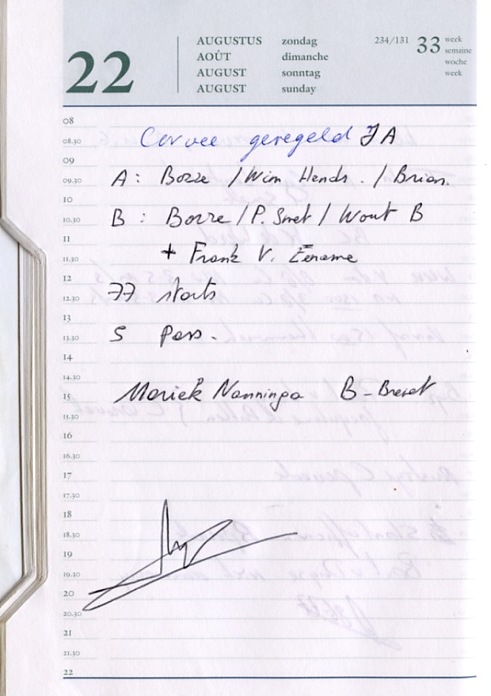 22
AUGUSTUS zondag
AOÛT dimanche
AUGUST sonntag
AUGUST sunday
234/131
33
week
semaine
woche
week
08
08.30 Corvee geregeld JA
09
09.30 A: Bosse / Wim Hends. / Brian.
10
10.30 B: / P. Smet / Wout B
11
11.30 + Frank V. Ename
12
12.30 77 starts
13
13.30 5 Pass.
14
14.30
15 Mariek Nanninga B-Brevet
15.30
16
16.30
17
17.30
18
18.30
19
19.30
20
20.30
21
21.30
22